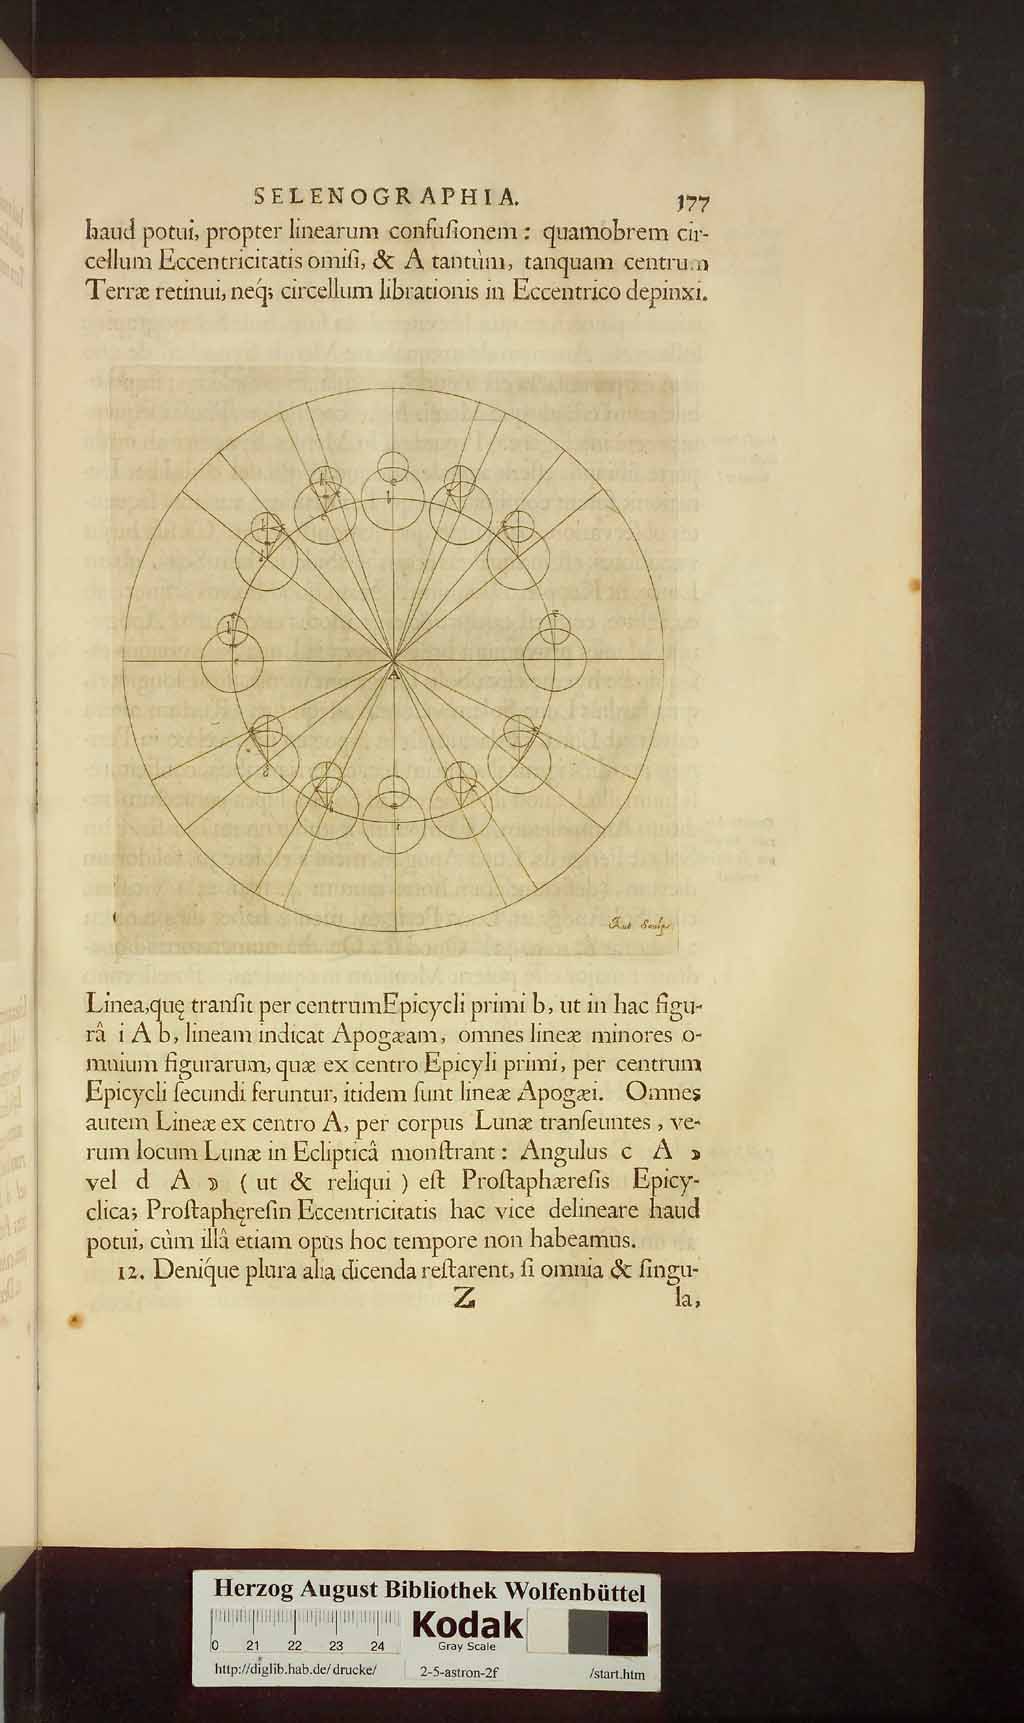 SELENOGRAPHIA. 177
haud potui, propter linearum confuſionem : quamobrem cir-
cellum Eccentricitatis omiſi, & A tantùm, tanquam centrum
Terræ retinui, neq́; circellum librationis in Eccentrico depinxi.
A
Sculp.
Linea, quę tranſit per centrum Epicycli primi b, ut in hac figu-
râ i A b, lineam indicat Apogæam, omnes lineæ minores o-
mnium figurarum, quæ ex centro Epicyli primi, per centrum
Epicycli ſecundi feruntur, itidem ſunt lineæ Apogæi. Omnes
autem Lineæ ex centro A, per corpus Lunæ tranſeuntes, ve-
rum locum Lunæ in Eclipticâ monſtrant : Angulus c A ☽
vel d A ☽ ( ut & reliqui ) eſt Proſtaphæreſis Epicy-
clica; Proſtaphęreſin Eccentricitatis hac vice delineare haud
potui, cùm illâ etiam opus hoc tempore non habeamus.
12. Deniq́ue plura alia dicenda reſtarent, ſi omnia & ſingu-
Z la,
Herzog August Bibliothek Wolfenbüttel
Kodak
Gray Scale
0 21 22 23 24
http://diglib.hab.de/drucke/ 2-5-astron-2f /start.htm